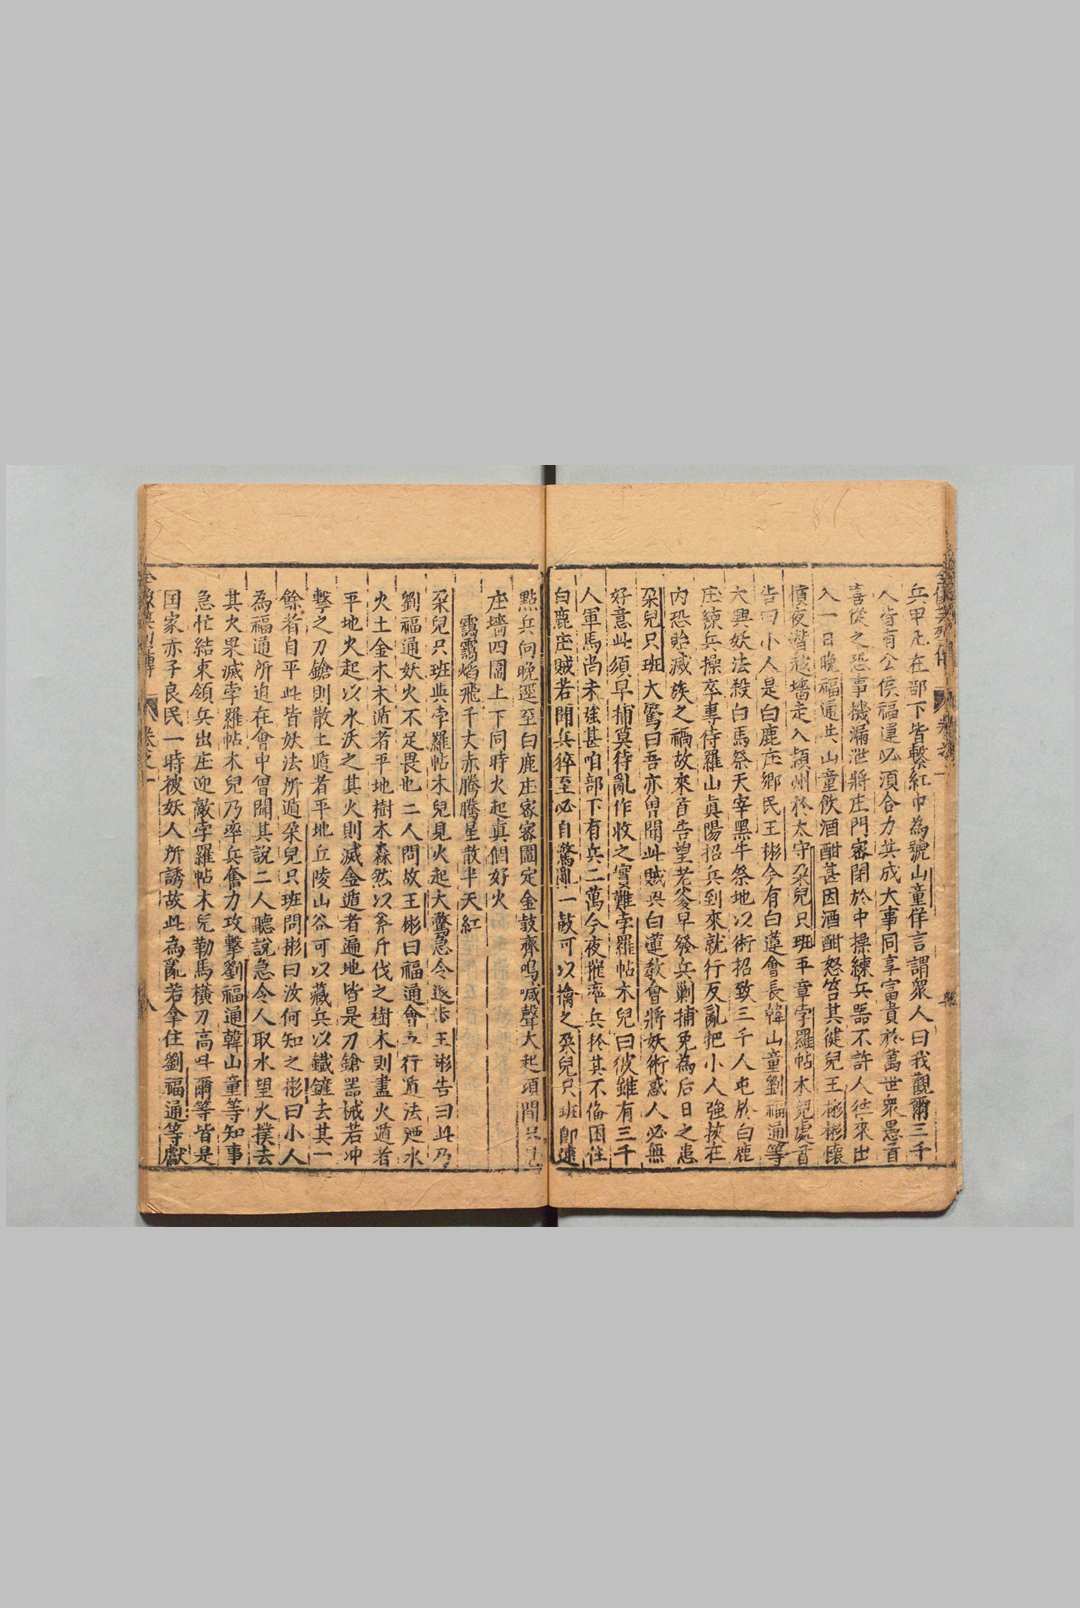 兵甲凡在部下皆繫紅巾為號山童佯言謂眾人曰我觀爾三千
人皆有公侯福運必須合力共成大事同享富貴於萬世眾愚百
喜從之恐事機漏泄將庄門密閉於中操練兵器不許人徃來出
入一日晚福通共山童飲酒酣甚因酒酣怒笞其健兒王彬彬懷
憤夜潛越墻走入潁州於太守朶兒只班平章孛羅帖木兒處首
告曰小人是白鹿庄鄉民王彬今有白蓮會長韓山童劉福通等
大興妖法殺白馬祭天宰黑牛祭地以術招致三千人屯於白鹿
庄練兵操卒專待羅山真陽招兵到來就行反亂把小人強挾在
內恐貽滅族之禍故來首告望老爹早發兵剿捕免為后日之患
朶兒只班大驚曰吾亦曾聞此賊與白蓮教會將妖術惑人必無
好意此須早捕莫待亂作收之實難孛羅帖木兒曰彼雖有三千
人軍馬尚未強甚咱部下有兵二萬今夜催率兵於其不俻困住
白鹿庄賊若聞兵猝至必自驚亂一敲可以擒之朶兒只班即遂
點兵向晚逕至白鹿庄密密圍定金鼓齊鳴喊聲大起須臾
庄墻四圍上下同時火起真個好火
靄靄焰飛千丈赤騰騰星散半天紅
朶兒只班與孛羅帖木兒見火起大驚急令退步王彬告曰此乃
劉福通妖火不足畏也二人問故王彬曰福通會五行遁法廼水
火土金木木遁者平地樹木森然以斧斤伐之樹木則盡火遁者
平地火起以水沃之其火則滅金遁者遍地皆是刀鎗器械若冲
擊之刀鎗則散土遁者平地丘陵山谷可以藏兵以鐵鏟去其一
餘者自平此皆妖法所遁朶兒只班問彬曰汝何知之彬曰小人
為福通所迫在會中曾聞其說二人聽說急令人取水望火撲去
其火果滅孛羅帖木兒乃率兵奮力攻擊劉福通韓山童等知事
急忙結束領兵出庄迎敵孛羅帖木兒勒馬橫刀高叫爾等皆是
国家赤子良民一時被妖人所誘故此為亂若拿住劉福通等獻
卷之一
八